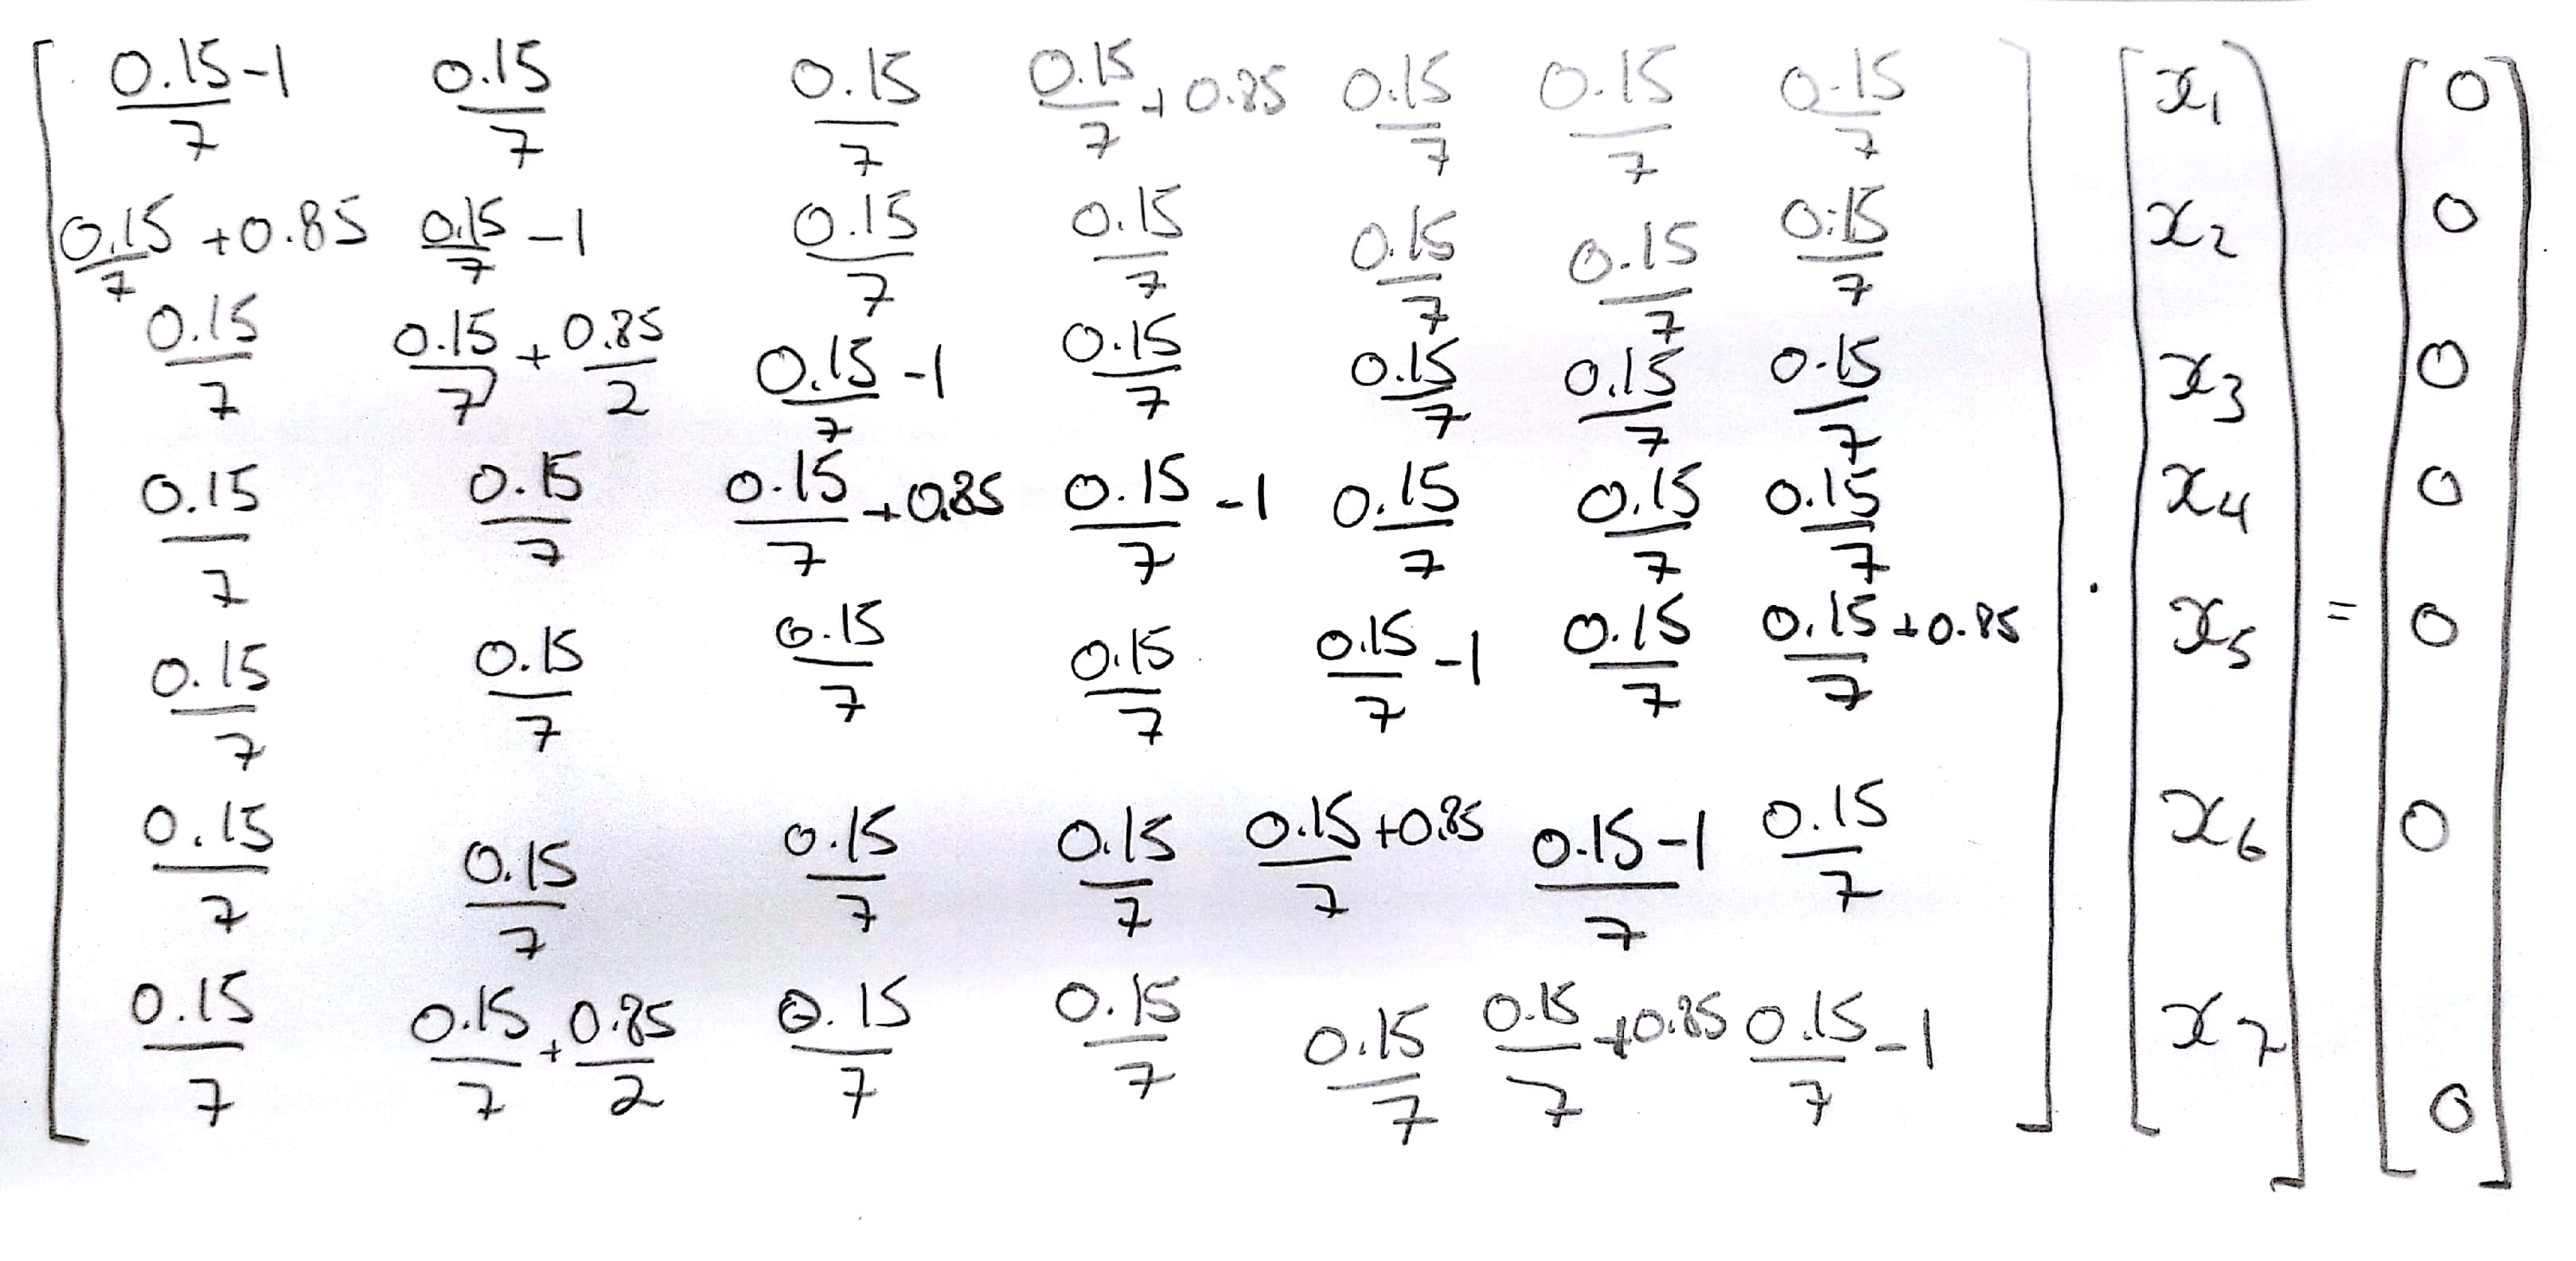 0.15-1/7 0.15/7 0.15/7 0.15/7 + 0.85 0.15/7 0.15/7 0.15/7 x1 0
0.15/7 + 0.85 0.15/7 - 1 0.15/7 0.15/7 0.15/7 0.15/7 0.15/7 x2 0
0.15/7 0.15/7 + 0.85/2 0.15/7 - 1 0.15/7 0.15/7 0.15/7 0.15/7 x3 0
0.15/7 0.15/7 0.15/7 + 0.85 0.15/7 - 1 0.15/7 0.15/7 0.15/7 x4 0
0.15/7 0.15/7 0.15/7 0.15/7 0.15/7 - 1 0.15/7 0.15/7 + 0.85 . x5 = 0
0.15/7 0.15/7 0.15/7 0.15/7 0.15/7 + 0.85 0.15-1/7 0.15/7 x6 0
0.15/7 0.15/7 + 0.85/2 0.15/7 0.15/7 0.15/7 0.15/7 + 0.85 0.15/7 - 1 x7 0